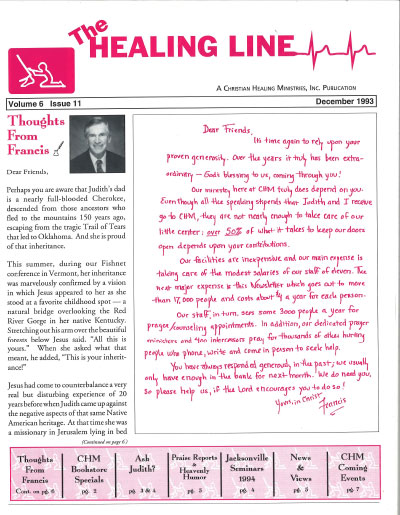 The
HEALING LINE
A CHRISTIAN HEALING MINISTRIES, INC. PUBLICATION
Volume 6 Issue 11
December 1993
Thoughts
From
Francis
Dear Friends,
Perhaps you are aware that Judith's dad
is a nearly full-blooded Cherokee,
descended from those ancestors who
fled to the mountains 150 years ago,
escaping from the tragic Trail of Tears
that led to Oklahoma. And she is proud
of that inheritance.
This summer, during our Fishnet
conference in Vermont, her inheritance
was marvelously confirmed by a vision
in which Jesus appeared to her as she
stood at a favorite childhood spot — a
natural bridge overlooking the Red
River Gorge in her native Kentucky.
Stretching out his arm over the beautiful
forests below Jesus said, "All this is
yours." When she asked what that
meant, he added, "This is your inherit-
ance!"
Jesus had come to counterbalance a very
real but disturbing experience of 20
years before when Judith came up against
the negative aspects of that same Native
American heritage. At that time she was
a missionary in Jerusalem lying in bed
(Continued on page 6)
Dear Friends,
It's time again to rely upon your
proven generosity. Over the years it truly has been extra-
ordinary — God's blessing to us, coming through you!
Our ministry here at CHM truly does depend on you.
Even though all the speaking stipends that Judith and I receive
go to CHM, they are not nearly enough to take care of our
little center: over 50% of what it takes to keep our doors
open depends upon your contributions.
Our facilities are inexpensive and our main expense is
taking care of the modest salaries of our staff of eleven. The
next major expense is this Newsletter which goes out to more
than 17,000 people and costs about a year for each person.
Our staff, in turn, sees some 3000 people a year for
prayer/counseling appointments. In addition, our dedicated prayer
ministers and intercessors pray for thousands of other hurting
people who phone, write and come in person to seek help.
You have always responded generously in the past; we usually
only have enough in the bank for next month. We do need you,
so please help us, if the Lord encourages you to do so!
Yours, in Christ
Francis
Thoughts
From
Francis
Cont. on pg. 6
CHM
Bookstore
Specials
pg. 2
Ask
Judith?
pg. 3 & 4
Praise Reports
&
Heavenly
Humor
pg. 5
Jacksonville
Seminars
1994
pg. 4
News
&
Views
pg. 5
CHM
Coming
Events
pg. 7